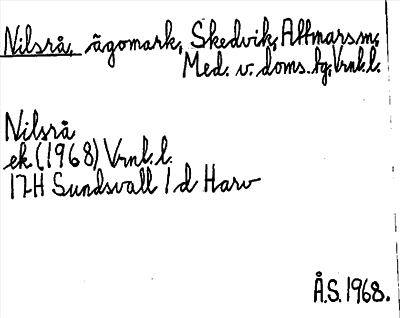 Nilsrå, ägomark, Skedvik, Attmars sn,
Med. v. doms. hg, Vrnl. l.
Nilsrå
ek (1968) Vrnl. l.
17H Sundsvall 1 d Harv
Å.S. 1968.